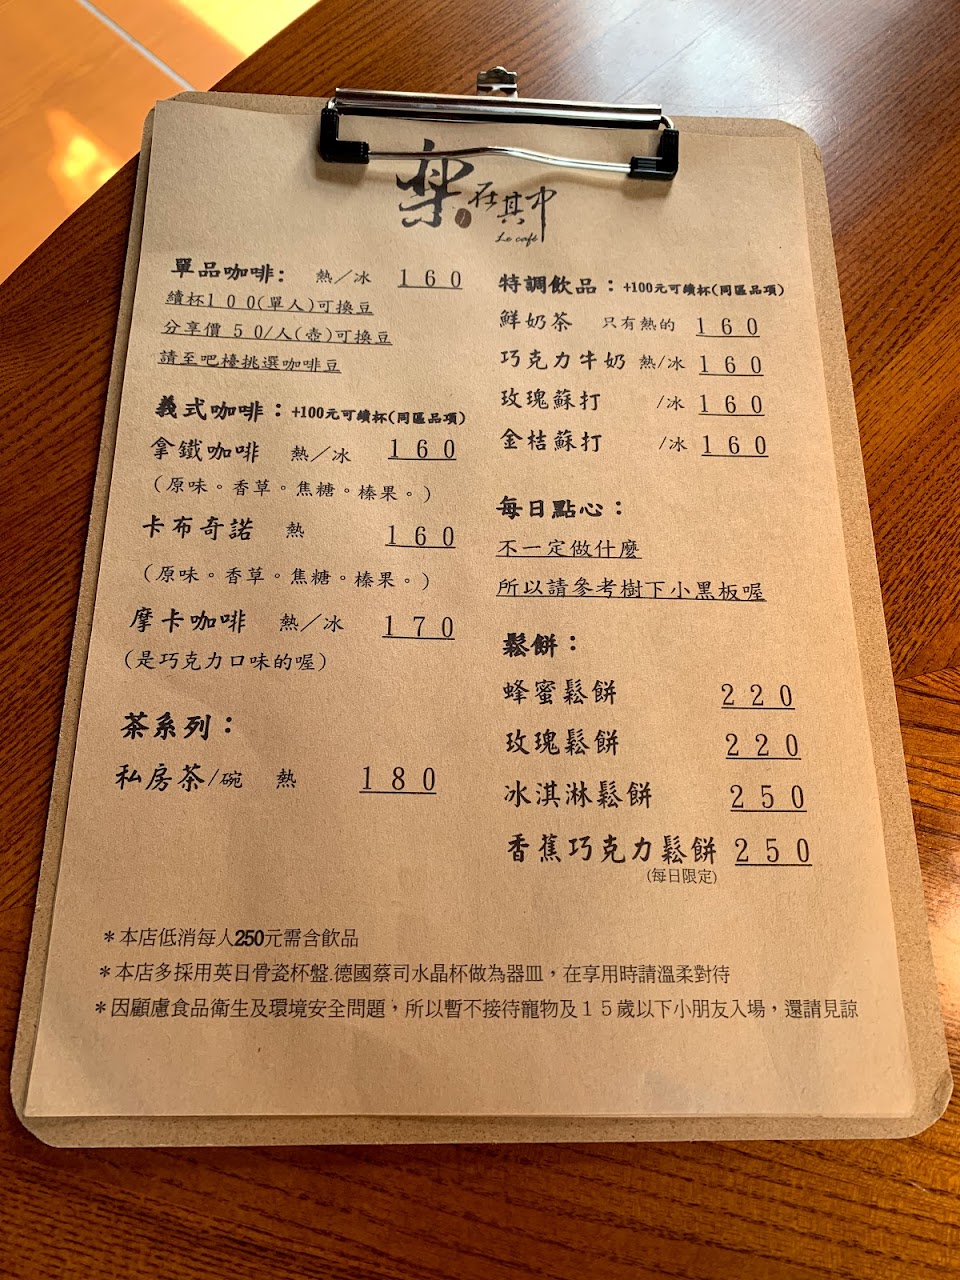 樂在其中
Le café
單品咖啡: 熱／冰 １６０
續杯１００(單人)可換豆
分享價 ５０/人(壺)可換豆
請至吧檯挑選咖啡豆
義式咖啡：+100元可續杯(同區品項)
拿鐵咖啡 熱／冰 １６０
（原味。香草。焦糖。榛果。）
卡布奇諾 熱 １６０
（原味。香草。焦糖。榛果。）
摩卡咖啡 熱／冰 １７０
（是巧克力口味的喔）
茶系列：
私房茶/碗 熱 １８０
特調飲品：+100元可續杯(同區品項)
鮮奶茶 只有熱的 １６０
巧克力牛奶 熱/冰 １６０
玫瑰蘇打 /冰 １６０
金桔蘇打 /冰 １６０
每日點心：
不一定做什麼
所以請參考樹下小黑板喔
鬆餅：
蜂蜜鬆餅 ２２０
玫瑰鬆餅 ２２０
冰淇淋鬆餅 ２５０
香蕉巧克力鬆餅 ２５０
(每日限定)
＊本店低消每人250元需含飲品
＊本店多採用英日骨瓷杯盤.德國蔡司水晶杯做為器皿，在享用時請溫柔對待
＊因顧慮食品衛生及環境安全問題，所以暫不接待寵物及１５歲以下小朋友入場，還請見諒